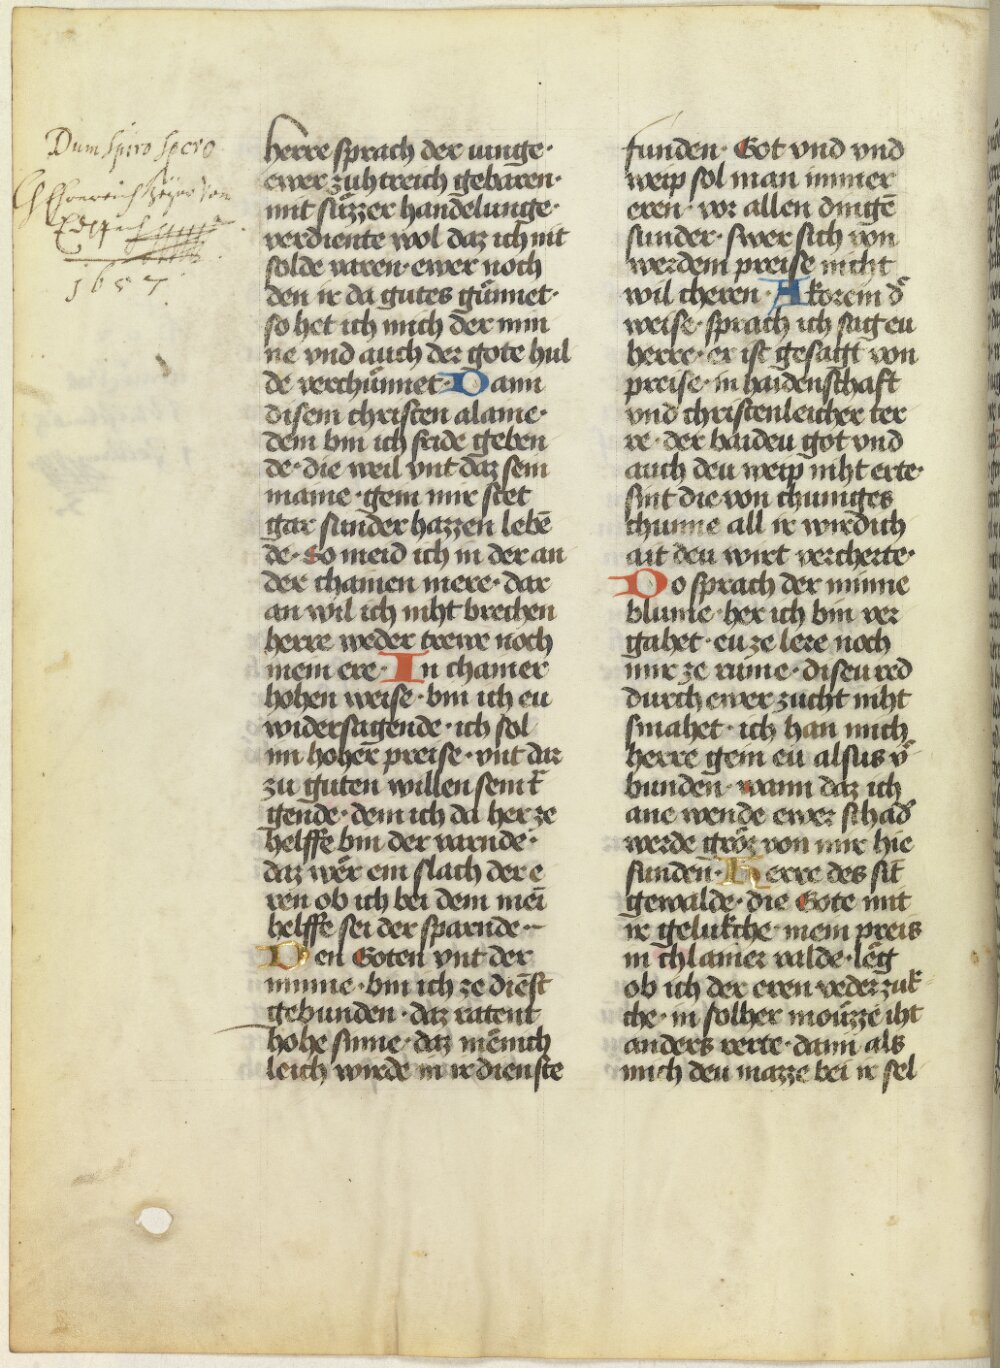 Dum spiro spero
1657
herre sprach der iunge·
ewer zuhtreich gebaren·
mit süzzer handelunge·
verdiente wol daz ich nit
solde varen· ewer noch
den ir da gutes günnet·
so het ich mich der min
ne vnd auch der gote hul
de verchünnet· Dann
disem christen alaine·
dem bin ich seide geben
de· die weil vnt daz sein
maine· gein mir stet
gar sunder hazzen lebē
de· So meid ich in der an
der chainen mere· dar
an wil ich niht brechen
herre weder trewe noch
mein ere· In chainer
hohen weise· bin ich eu
widersagende· ich sol
im hoher preise· vnt daz
zu guten willen sein t̄
gende· dem ich da her ze
helffe bin der varnde·
daz wer ein slach der e
ren ob ich bei dem mei
helffe sei der sparnde·
Den Goten vnt der
minne· bin ich ze dienst
gebunden· daz ratent
hohe sinne· daz menich
leich wirde in ir dienste
funden· Got vnd vnd
weip sol man immer
eren· vor allen dingē
sunder· swer sich von
werdem preise nicht
wil cheren· Akorein d
weise· sprach ich sag eu
herre· er ist gesagt von
preise· in haidenschaft
vnd christenleicher ter
re· der baideu got vnd
auch deu weip niht erte·
sint die von chuniges
chunne all ir wirdich
ait deu wirt vercherte·
Do sprach der minne
blume· her ich bin ver
gahet· eu ze lere noch
mir ze rume· diseu red
durch ewer zucht niht
smahet· ich han mich
herre gein eu alsus v
bunden· wann daz ich
ane wende ewer schad
werde gröz von mir hie
funden· Herre des sit
gewalde· die Gote mit
ir gelukche· mein preis
in chlainer valde· leg
ob ich der eren veder zuk
che· in solher mouzze iht
anders verte· dann als
mich deu mazze bei ir sel